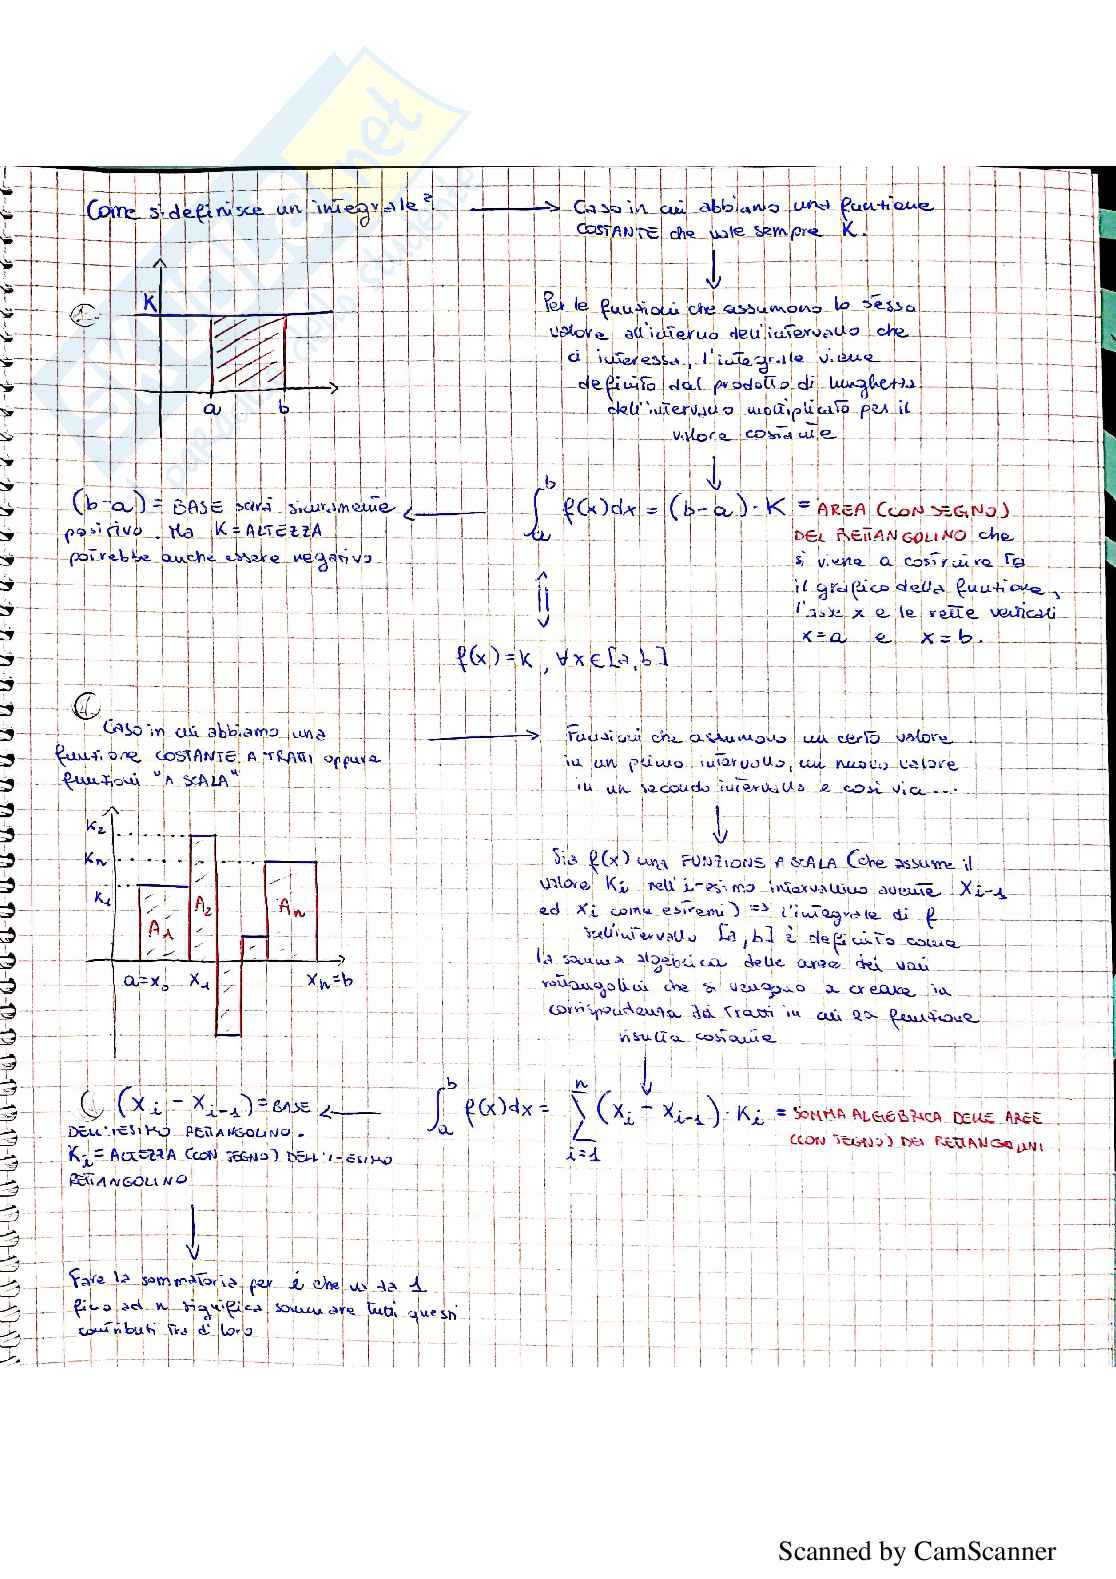 Come si definisce un integrale?
Caso in cui abbiamo una funzione
COSTANTE che vale sempre K.
1
K
a b
Per le funzioni che assumono lo stesso
valore all'interno dell'intervallo che
ci interessa, l'integrale viene
definito dal prodotto di lunghezza
dell'intervallo moltiplicato per il
valore costante
(b-a) = BASE sarà sicuramente
positivo. Ma K = ALTEZZA
potrebbe anche essere negativo
∫_a^b f(x)dx = (b-a)·K = AREA (CON SEGNO)
DEL RETTANGOLINO che
si viene a costruire tra
il grafico della funzione,
l'asse x e le rette verticali
x=a e x=b.
f(x)=K, ∀x∈[a,b]
Caso in cui abbiamo una
funzione COSTANTE A TRATTI oppure
funzioni "A SCALA"
Funzioni che assumono un certo valore
in un primo intervallo, un nuovo valore
in un secondo intervallo e così via...
K₂
Kn
K₁
A₁ A₂ An
a=x₀ x₁ xn=b
Sia f(x) una FUNZIONE A SCALA (che assume il
valore Ki nell'i-esimo intervallino avente Xi-1
ed xi come estremi) => l'integrale di f
sull'intervallo [a,b] è definito come
la somma algebrica delle aree dei vari
rettangolini che si vengono a creare in
corrispondenza dei tratti in cui la funzione
risulta costante
(xi - xi-1) = BASE
DELL'IESIMO RETTANGOLINO.
Ki = ALTEZZA (CON SEGNO) DELL'I-ESIMO
RETTANGOLINO
∫_a^b f(x)dx = ∑_{i=1}^n (xi - xi-1)·Ki = SOMMA ALGEBRICA DELLE AREE
(CON SEGNO) DEI RETTANGOLINI
Fare la sommatoria per i che va da 1
fino ad n significa sommare tutti questi
contributi tra di loro
Scanned by CamScanner